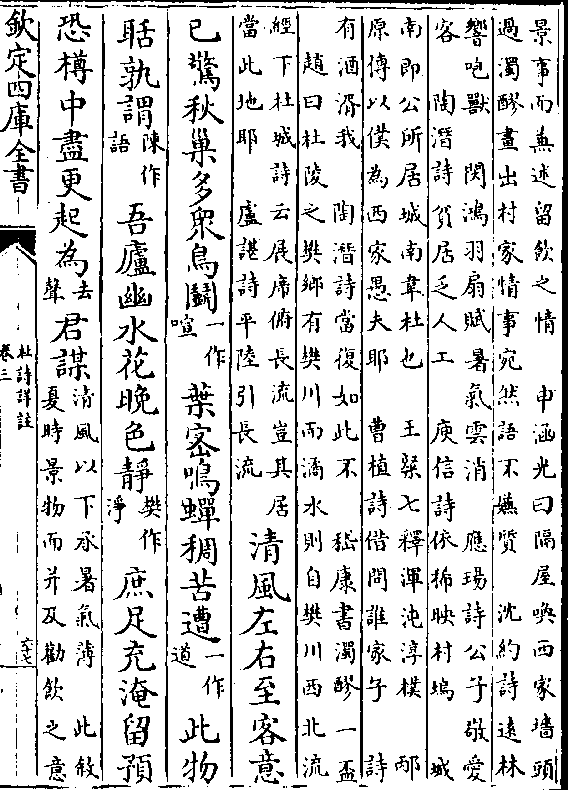 景事而無述留飲之情　申涵光曰隔屋喚西家墻頭
過濁醪畫出村家情事宛然語不嫌質　沈約詩遠林
響咆獸　閔鴻羽扇賦暑氣雲消　應瑒詩公子敬愛
客　陶潛詩貧居乏人工　庾信詩依稀映村塢　城
南即公所居城南韋杜也　王粲七釋渾沌淳樸　邴
原傳以僕為西家愚夫耶　曹植詩借問誰家子　詩
有酒湑我　陶潛詩當復如此不　嵇康書濁醪一盃
趙曰杜陵之樊鄉有樊川而潏水則自樊川西北流
經下杜城詩云展席俯長流豈其居
當此地耶　盧諶詩平陸引長流
清風左右至客意
已驚秋巢多眾鳥鬬一作喧葉密鳴蟬稠苦遭一作道此物
聒孰謂陳作語吾廬幽水花晚色靜樊作淨庶足充淹留預
恐樽中盡更起為去聲君謀
清風以下承暑氣薄　此敘
夏時景物而并及勸飲之意
欽定四庫全書
杜詩詳註
卷三